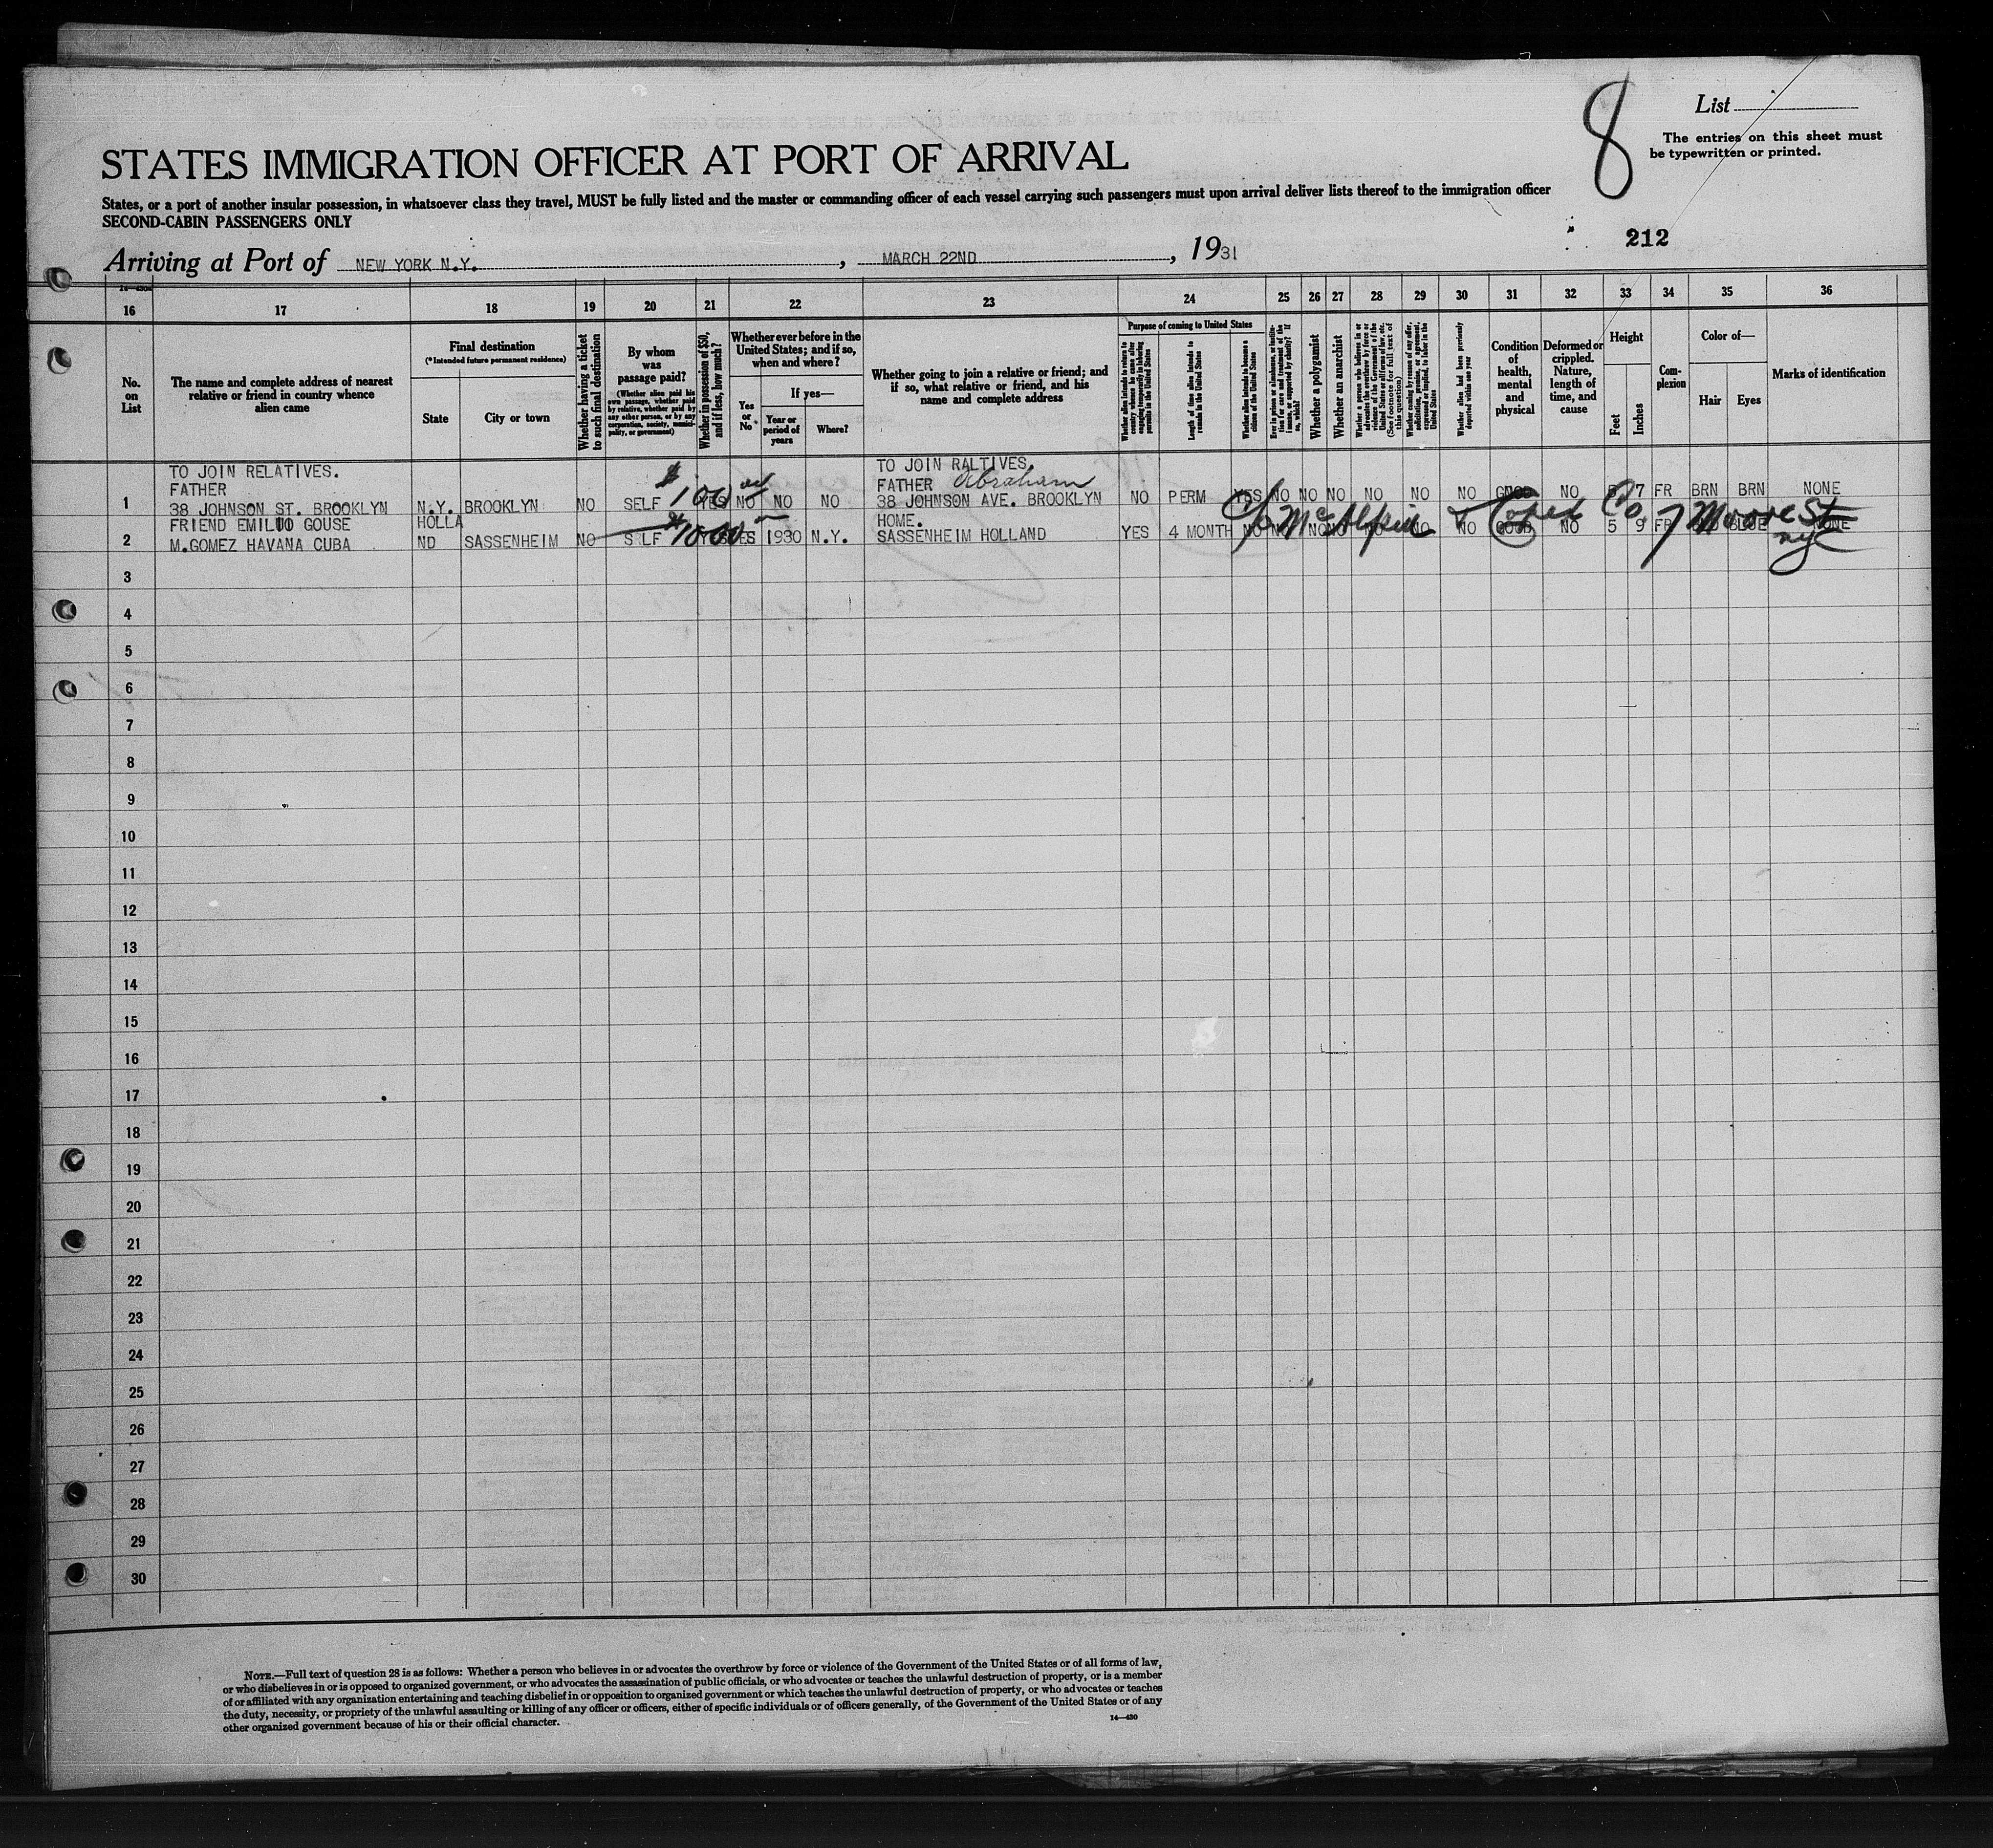 8
List
The entries on this sheet must
be typewritten or printed.
STATES IMMIGRATION OFFICER AT PORT OF ARRIVAL
States, or a port of another insular possession, in whatsoever class they travel, MUST be fully listed and the master or commanding officer of each vessel carrying such passengers must upon arrival deliver lists thereof to the immigration officer
SECOND-CABIN PASSENGERS ONLY
212
Arriving at Port of NEW YORK N.Y. , MARCH 22ND , 1931
14—430
16 17 18 19 20 21 22 23 24 25 26 27 28 29 30 31 32 33 34 35 36
No.
on
List
The name and complete address of nearest
relative or friend in country whence
alien came
Final destination
(*Intended future permanent residence)
State
City or town
Whether having a ticket
to such final destination
By whom
was
passage paid?
(Whether alien paid his
own passage, whether paid
by relative, whether paid by
any other person, or by any
corporation, society, munici-
pality, or government)
Whether in possession of $50,
and if less, how much?
Whether ever before in the
United States; and if so,
when and where?
Yes
or
No
If yes—
Year or
period of
years
Where?
Whether going to join a relative or friend; and
if so, what relative or friend, and his
name and complete address
Purpose of coming to United States
Whether alien intends to return to
country whence he came after
engaging temporarily in laboring
pursuits in the United States
Length of time alien intends to
remain in the United States
Whether alien intends to become a
citizen of the United States
Ever in prison or almshouse, or institu-
tion for care and treatment of the
insane, or supported by charity? If
so, which?
Whether a polygamist
Whether an anarchist
Whether a person who believes in or
advocates the overthrow by force or
violence of the Government of the
United States or all forms of law, etc.
(See footnote for full text of
this question)
Whether coming by reason of any offer,
solicitation, promise, or agreement,
expressed or implied, to labor in the
United States
Whether alien had been previously
deported within one year
Condition
of
health,
mental
and
physical
Deformed or
crippled.
Nature,
length of
time, and
cause
Height
Feet
Inches
Com-
plexion
Color of—
Hair
Eyes
Marks of identification
TO JOIN RELATIVES. TO JOIN RALTIVES.
FATHER $100 FATHER Abraham
1 38 JOHNSON ST. BROOKLYN N.Y. BROOKLYN NO SELF YES NO NO NO 38 JOHNSON AVE. BROOKLYN NO PERM YES NO NO NO NO NO NO GOOD NO 5 7 FR BRN BRN NONE
FRIEND EMILIO GOUSE HOLLA HOME. c/o McAlpin & Co 7 Moore St
2 M.GOMEZ HAVANA CUBA ND SASSENHEIM NO SELF YES 1930 N.Y. SASSENHEIM HOLLAND YES 4 MONTH NO NO NO NO NO NO NO GOOD NO 5 9 FR BLUE NONE
NYC
3
4
5
6
7
8
9
10
11
12
13
14
15
16
17
18
19
20
21
22
23
24
25
26
27
28
29
30
NOTE.—Full text of question 28 is as follows: Whether a person who believes in or advocates the overthrow by force or violence of the Government of the United States or of all forms of law,
or who disbelieves in or is opposed to organized government, or who advocates the assassination of public officials, or who advocates or teaches the unlawful destruction of property, or is a member
of or affiliated with any organization entertaining and teaching disbelief in or opposition to organized government or which teaches the unlawful destruction of property, or who advocates or teaches
the duty, necessity, or propriety of the unlawful assaulting or killing of any officer or officers, either of specific individuals or of officers generally, of the Government of the United States or of any
other organized government because of his or their official character.
14—430